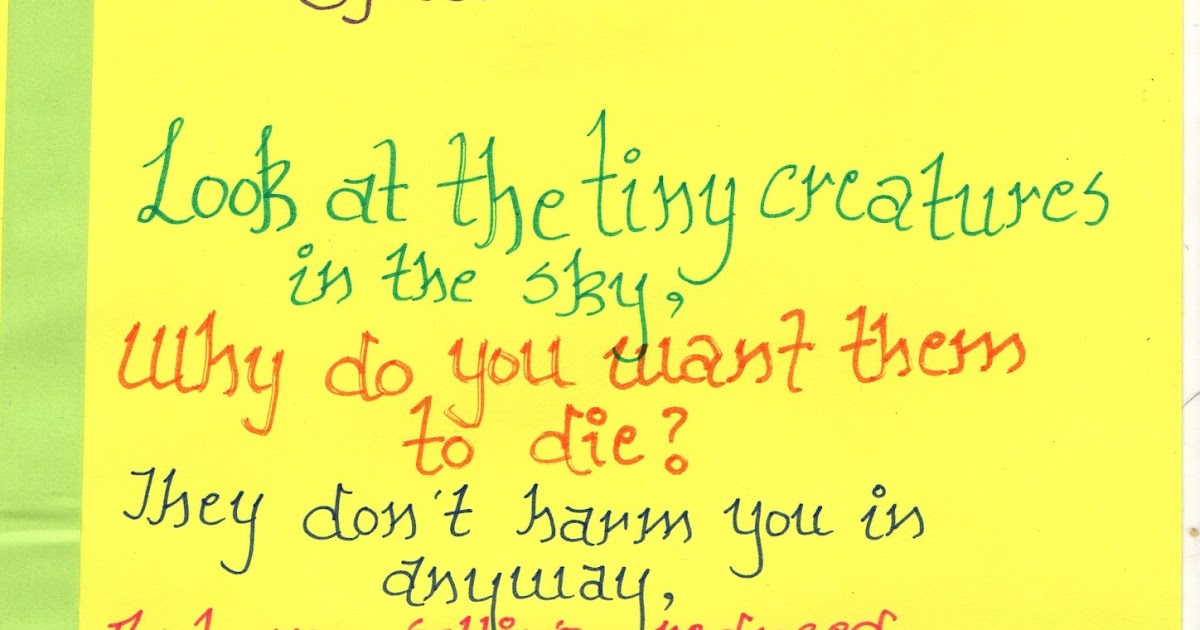 Look at the tiny creatures
in the sky,
Why do you want them
to die?
They don't harm you in
anyway,